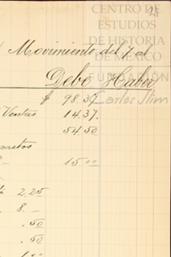 CENTRO DE
ESTUDIOS
DE HISTORIA
DE MÉXICO
Movimiento del 7 al
Debe Haber
FUNDACIÓN
$ 98.37
Carlos Slim
Ventas 14.37.
54.50
15.00
2.25
8. —
.50
.50